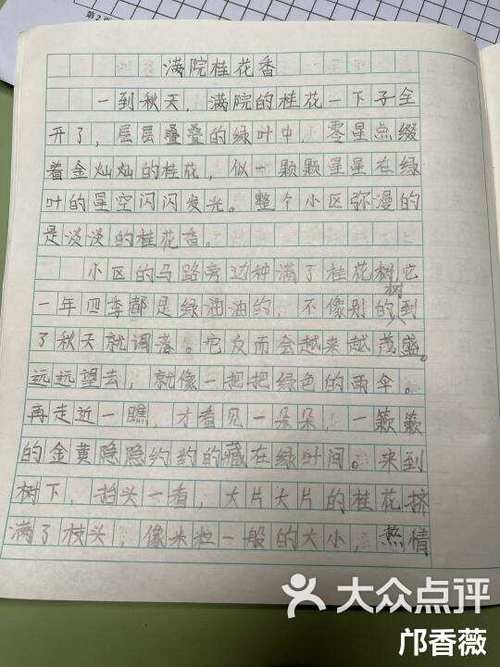 满院桂花香
一到秋天，满院的桂花一下子全
开了，层层叠叠的绿叶中，零星点缀
着金灿灿的桂花，似一颗颗星星在绿
叶的星空闪闪发光。整个小区弥漫的
是淡淡的桂花香。
小区的马路旁边种满了桂花树它
一年四季都是绿油油的，不像别的树到
了秋天就调落。它反而会越来越茂盛。
远远望去，就像一把把绿色的雨伞。
再走近一瞧，才看见一朵朵、一簌簌
的金黄隐隐约约的藏在绿叶间。来到
树下，抬头一看，大片大片的桂花挤
满了枝头，像米粒一般的大小，热情
大众点评
邝香薇